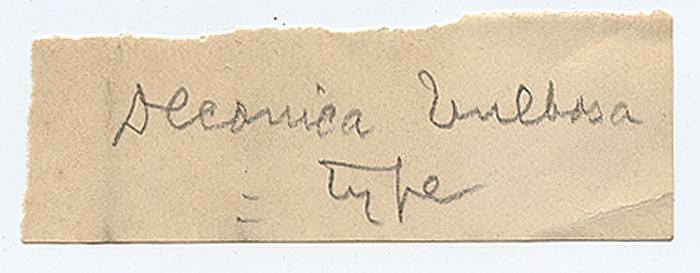 Deconica bulbosa
= type